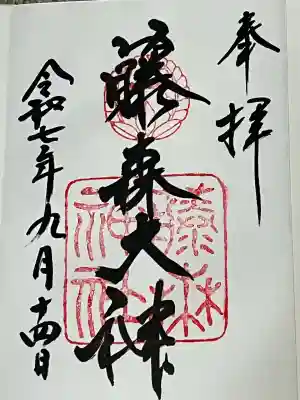 奉拝
藤森大神
藤森神社
令和七年九月十四日